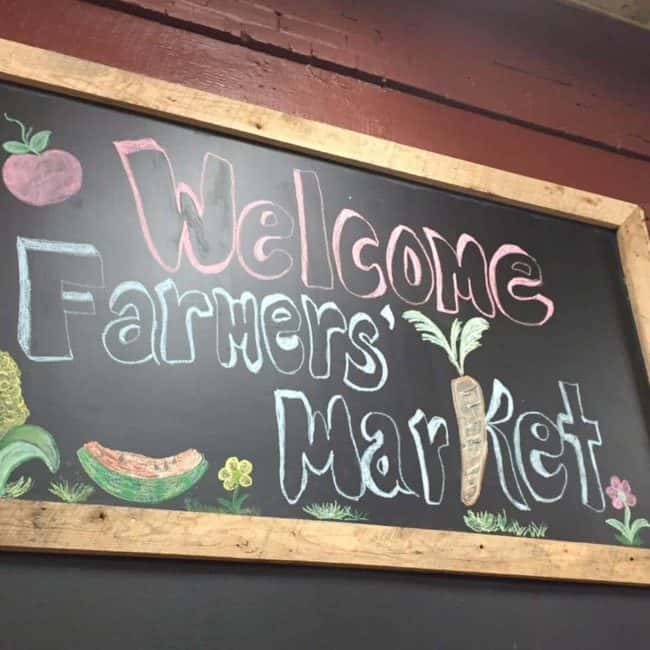 Welcome
Farmers'
Market